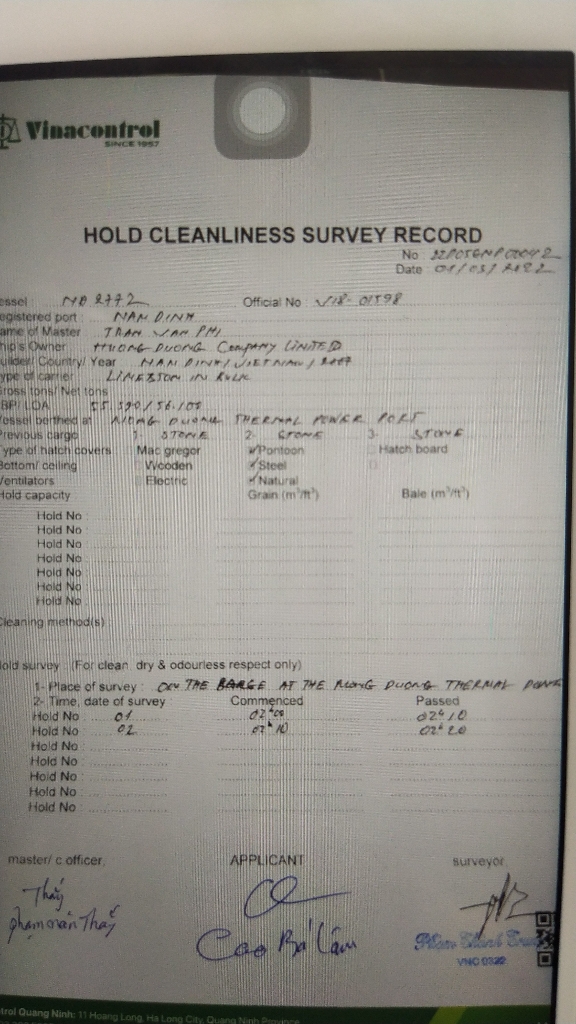 Vinacontrol
SINCE 1957
HOLD CLEANLINESS SURVEY RECORD
No
Date 01/03/2022
essel NB 2772 Official No V18-01598
egistered port: NAM DINH
ame of Master TRAN VAN PHI
hip's Owner HUONG DUONG COMPANY LIMITED
uilder/ Country/ Year NAM DINH/ VIETNAM/
ype of carrier LIMESTON IN BULK
Gross tons/ Net tons
BP/ LOA
essel berthed at MONG DUONG THERMAL POWER PORT
Previous cargo 1- STONE 2- STONE 3- STONE
ype of hatch covers Mac gregor Pontoon Hatch board
Bottom/ ceiling Wooden Steel
Ventilators Electric Natural
Hold capacity Grain (m³/ft³) Bale (m³/ft³)
Hold No
Hold No
Hold No
Hold No
Hold No
Hold No
Hold No
Cleaning method(s)
old survey (For clean, dry & odourless respect only)
1- Place of survey: ON THE BARGE AT THE MONG DUONG THERMAL
2- Time, date of survey Commenced Passed
Hold No 01 02h00 02h10
Hold No 02 02h10 02h20
Hold No
Hold No
Hold No
Hold No
Hold No
master/ c.officer APPLICANT surveyor
Thắng
phạm văn Thắng
Cao Bá Lâm
VNC 0322
trol Quang Ninh: 11 Hoang Long, Ha Long City, Quang Ninh Province